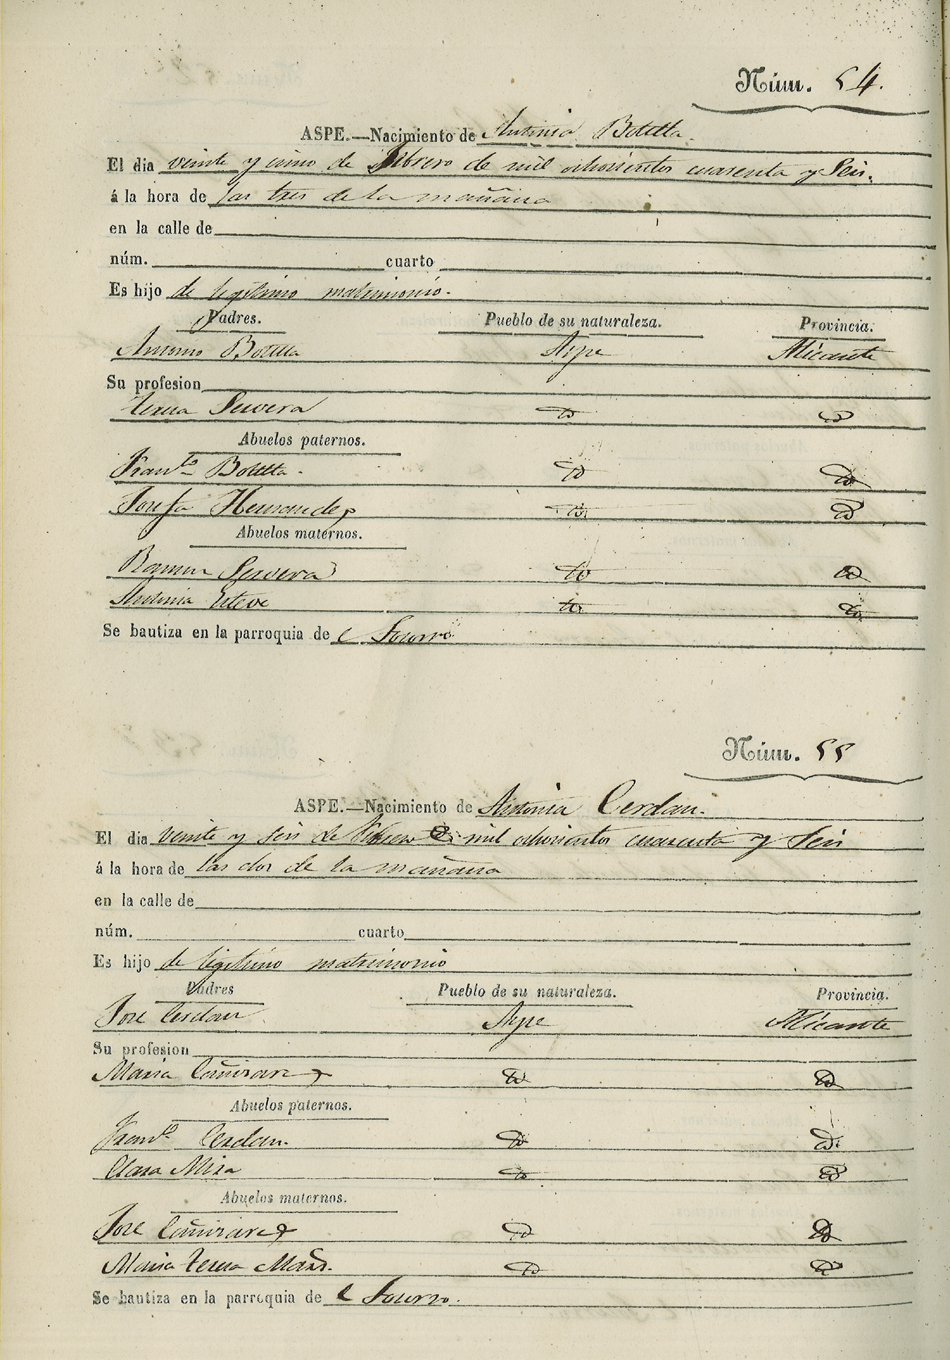 Núm. 54.
ASPE.—Nacimiento de Antonia Botella.
El dia veinte y cinco de Febrero de mil ochocientos cuarenta y Seis.
á la hora de las tres de la mañana
en la calle de
núm. cuarto
Es hijo de legitimo matrimonio.
Padres. Pueblo de su naturaleza. Provincia.
Antonio Botella Aspe Alicante
Su profesion
Teresa Cervera do do
Abuelos paternos.
Fran.co Botella. do do
Josefa Hernandez do do
Abuelos maternos.
Ramon Cervera do do
Antonia Esteve do do
Se bautiza en la parroquia de el Socorro
Núm. 55
ASPE.—Nacimiento de Antonia Cerdan.
El dia veinte y seis de Febrero de mil ochocientos cuarenta y Seis
á la hora de las dos de la mañana
en la calle de
núm. cuarto
Es hijo de legitimo matrimonio
Padres Pueblo de su naturaleza. Provincia.
Jose Cerdan Aspe Alicante
Su profesion
Maria Cañizarez do do
Abuelos paternos.
Fran.co Cerdan. do do
Clara Mira do do
Abuelos maternos.
Jose Cañizarez do do
Maria Teresa do do
Se bautiza en la parroquia de el Socorro.